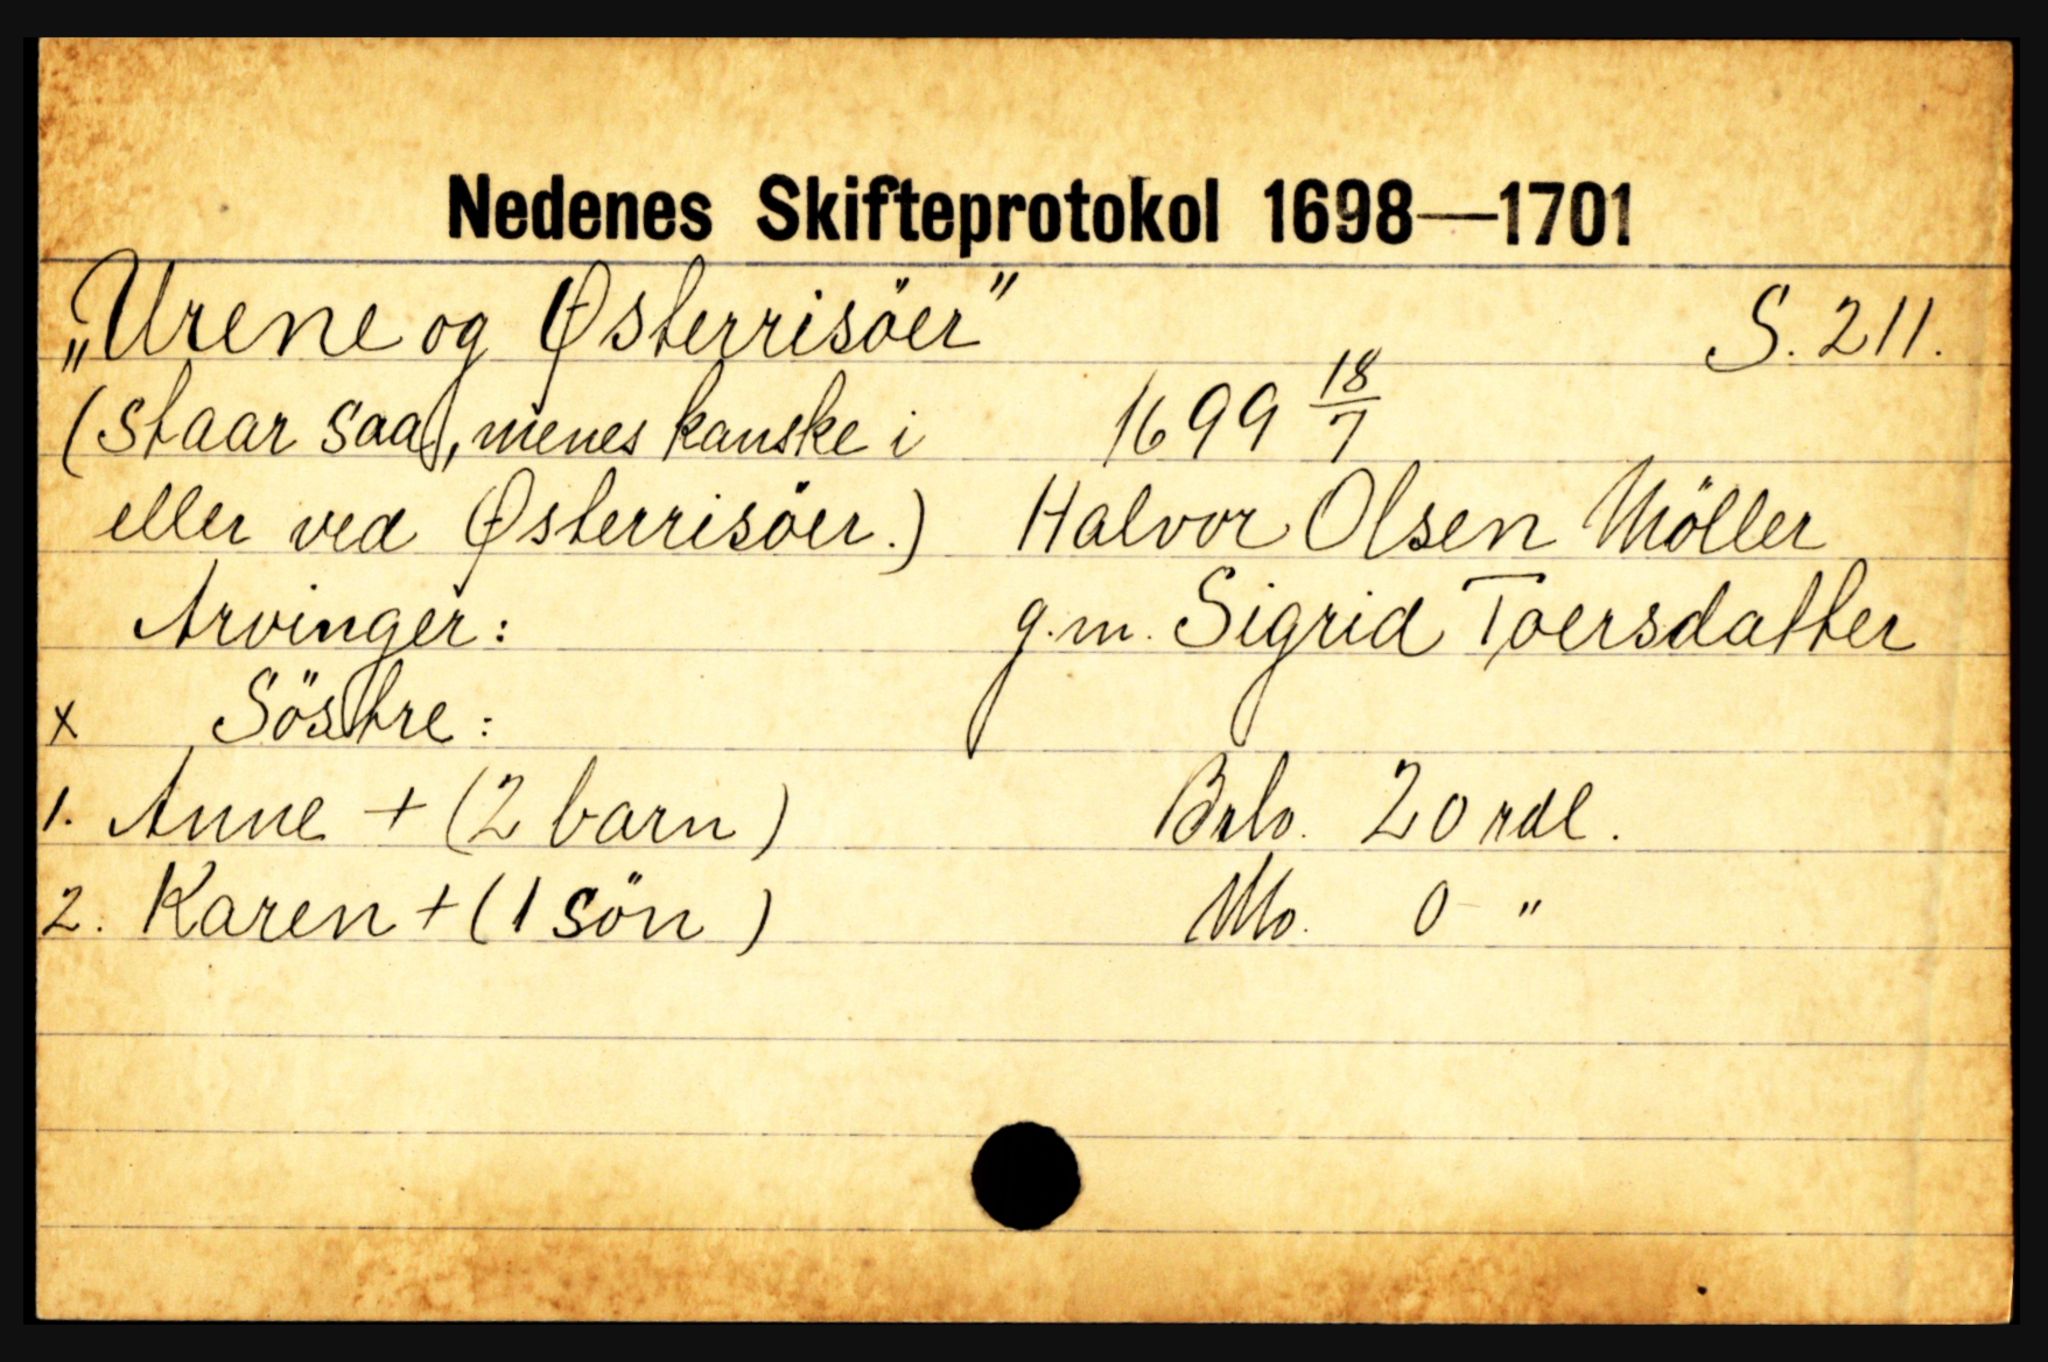 Nedenes Skifteprotokol 1698—1701
„Urene og Østerrisöer" S. 211.
(staar saa, menes kanske i 1699 18/7
eller ved Østerrisöer.) Halvor Olsen Möller
Arvinger: g.m. Sigrid Toersdatter
x Söstre:
1. Anne + (2 barn) Brlo. 20 rdl.
2. Karen + (1 sön) Mlo. 0 "